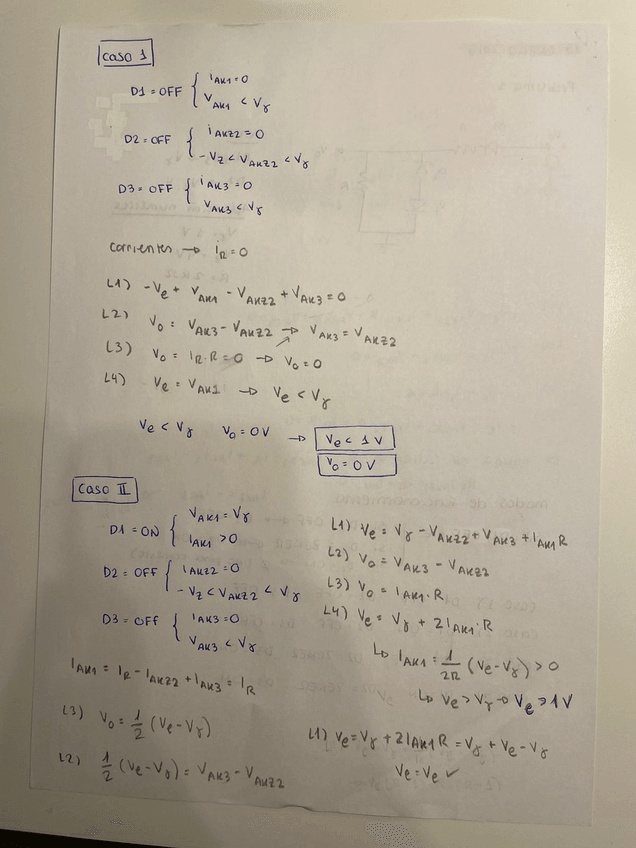 Caso 1
D1 = OFF { i_AK1 = 0
V_AK1 < Vγ
D2 = OFF { i_AKZ2 = 0
- V_Z < V_AKZ2 < Vγ
D3 = OFF { i_AK3 = 0
V_AK3 < Vγ
corrientes → i_R = 0
L1) - Ve + V_AK1 - V_AKZ2 + V_AK3 = 0
L2) Vo = V_AK3 - V_AKZ2 → V_AK3 = V_AKZ2
L3) Vo = i_R · R = 0 → Vo = 0
L4) Ve = V_AK1 → Ve < Vγ
Ve < Vγ Vo = 0V → Ve < 1V
Vo = 0V
Caso II
D1 = ON { V_AK1 = Vγ
i_AK1 > 0
D2 = OFF { i_AKZ2 = 0
- V_Z < V_AKZ2 < Vγ
D3 = OFF { i_AK3 = 0
V_AK3 < Vγ
I_AK1 = I_R - I_AKZ2 + I_AK3 = I_R
L3) Vo = 1/2 (Ve - Vγ)
L2) 1/2 (Ve - Vγ) = V_AK3 - V_AKZ2
L1) Ve = Vγ - V_AKZ2 + V_AK3 + I_AK1 R
L2) Vo = V_AK3 - V_AKZ2
L3) Vo = I_AK1 · R
L4) Ve = Vγ + 2 I_AK1 · R
↳ I_AK1 = 1/2R (Ve - Vγ) > 0
↳ Ve > Vγ → Ve > 1V
L1) Ve = Vγ + 2 I_AK1 R = Vγ + Ve - Vγ
Ve = Ve ✓